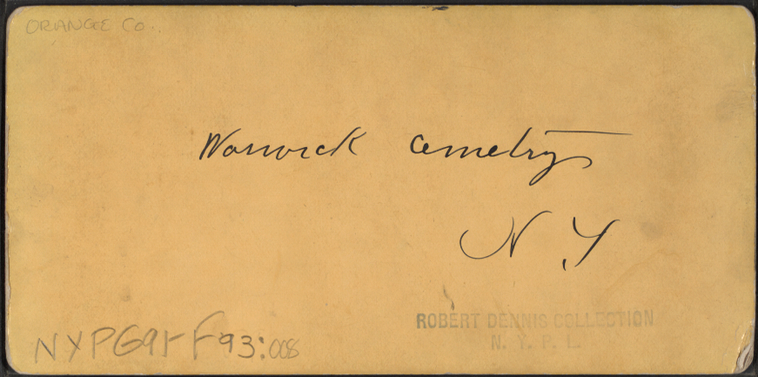 ORANGE Co.
Warwick Cemetry
N Y
ROBERT DENNIS COLLECTION
N. Y. P. L.
NYPG91-F93:008